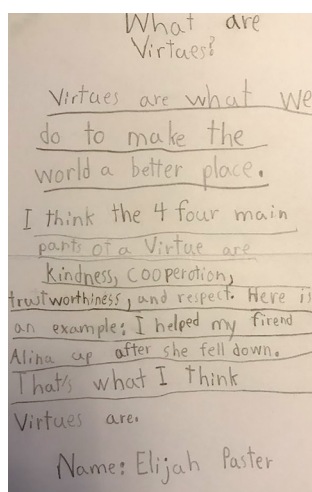 What are
Virtues?
Virtues are what we
do to make the
world a better place.
I think the 4 four main
parts of a Virtue are
kindness, cooperation,
trustworthiness, and respect. Here is
an example: I helped my firend
Alina up after she fell down.
That's what I think
Virtues are.
Name: Elijah Paster